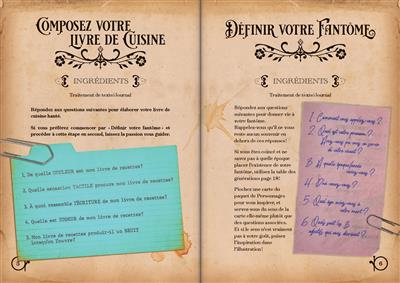 Composez votre
Livre de Cuisine
INGRÉDIENTS
Traitement de texte/Journal
Répondez aux questions suivantes pour élaborer votre livre de
cuisine hanté.
Si vous préférez commencer par « Définir votre fantôme » et
procéder à cette étape en second, laissez la passion vous guider.
1. De quelle COULEUR est mon livre de recettes?
2. Quelle sensation TACTILE procure mon livre de recettes?
3. À quoi ressemble l'ÉCRITURE de mon livre de recettes?
4. Quelle est l'ODEUR de mon livre de recettes?
5. Mon livre de recettes produit-il un BRUIT
lorsqu'on l'ouvre?
5
Définir votre Fantôme
INGRÉDIENTS
Traitement de texte/Journal
Répondez aux questions
suivantes pour donner vie à
votre fantôme.
Rappelez-vous qu'il ne vous
aura aucun souvenir en
dehors de ces réponses!
Si vous êtes coincé et ne
savez pas à quelle époque
placer l'existence de votre
fantôme, utilisez la table des
générations page 18!
Piochez une carte du
paquet de Personnages
pour vous inspirer, et
servez-vous du sens de la
carte elle-même plutôt que
des questions associées.
Et si le sens n'est vraiment
pas à votre goût, puisez
l'inspiration dans
l'illustration!
1. Comment vous appelez-vous?
2. Quel est votre pronom?
3. À quelle époque
4.
5. Quel âge
votre mort?
6. Quels sont les 3
6